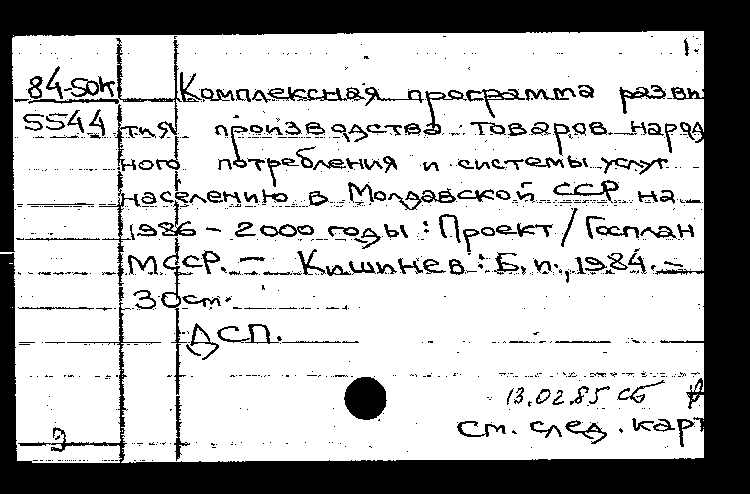 1.
84-50к Комплексная программа разви
5544 тия производства товаров народ
ного потребления и системы услуг
населению в Молдавской ССР на
1986 - 2000 годы : Проект / Госплан
МССР. - Кишинев : Б.и., 1984. -
30см.
ДСП.
13.02.85 СБ
см. след. карт
9